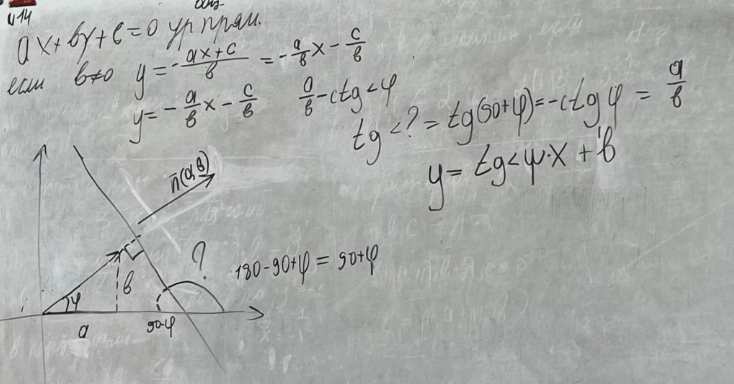 ax+by+c=0 ур прям.
если b≠0 y=-\frac{ax+c}{b} = -\frac{a}{b}x - \frac{c}{b}
y=-\frac{a}{b}x-\frac{c}{b} \frac{a}{b}-ctg<φ
tg<?=tg(90+φ)=-ctgφ = \frac{a}{b}
y= tg<φ·x + b
n̄(a,b)
?
180-90+φ = 90+φ
b
φ
a
90-φ